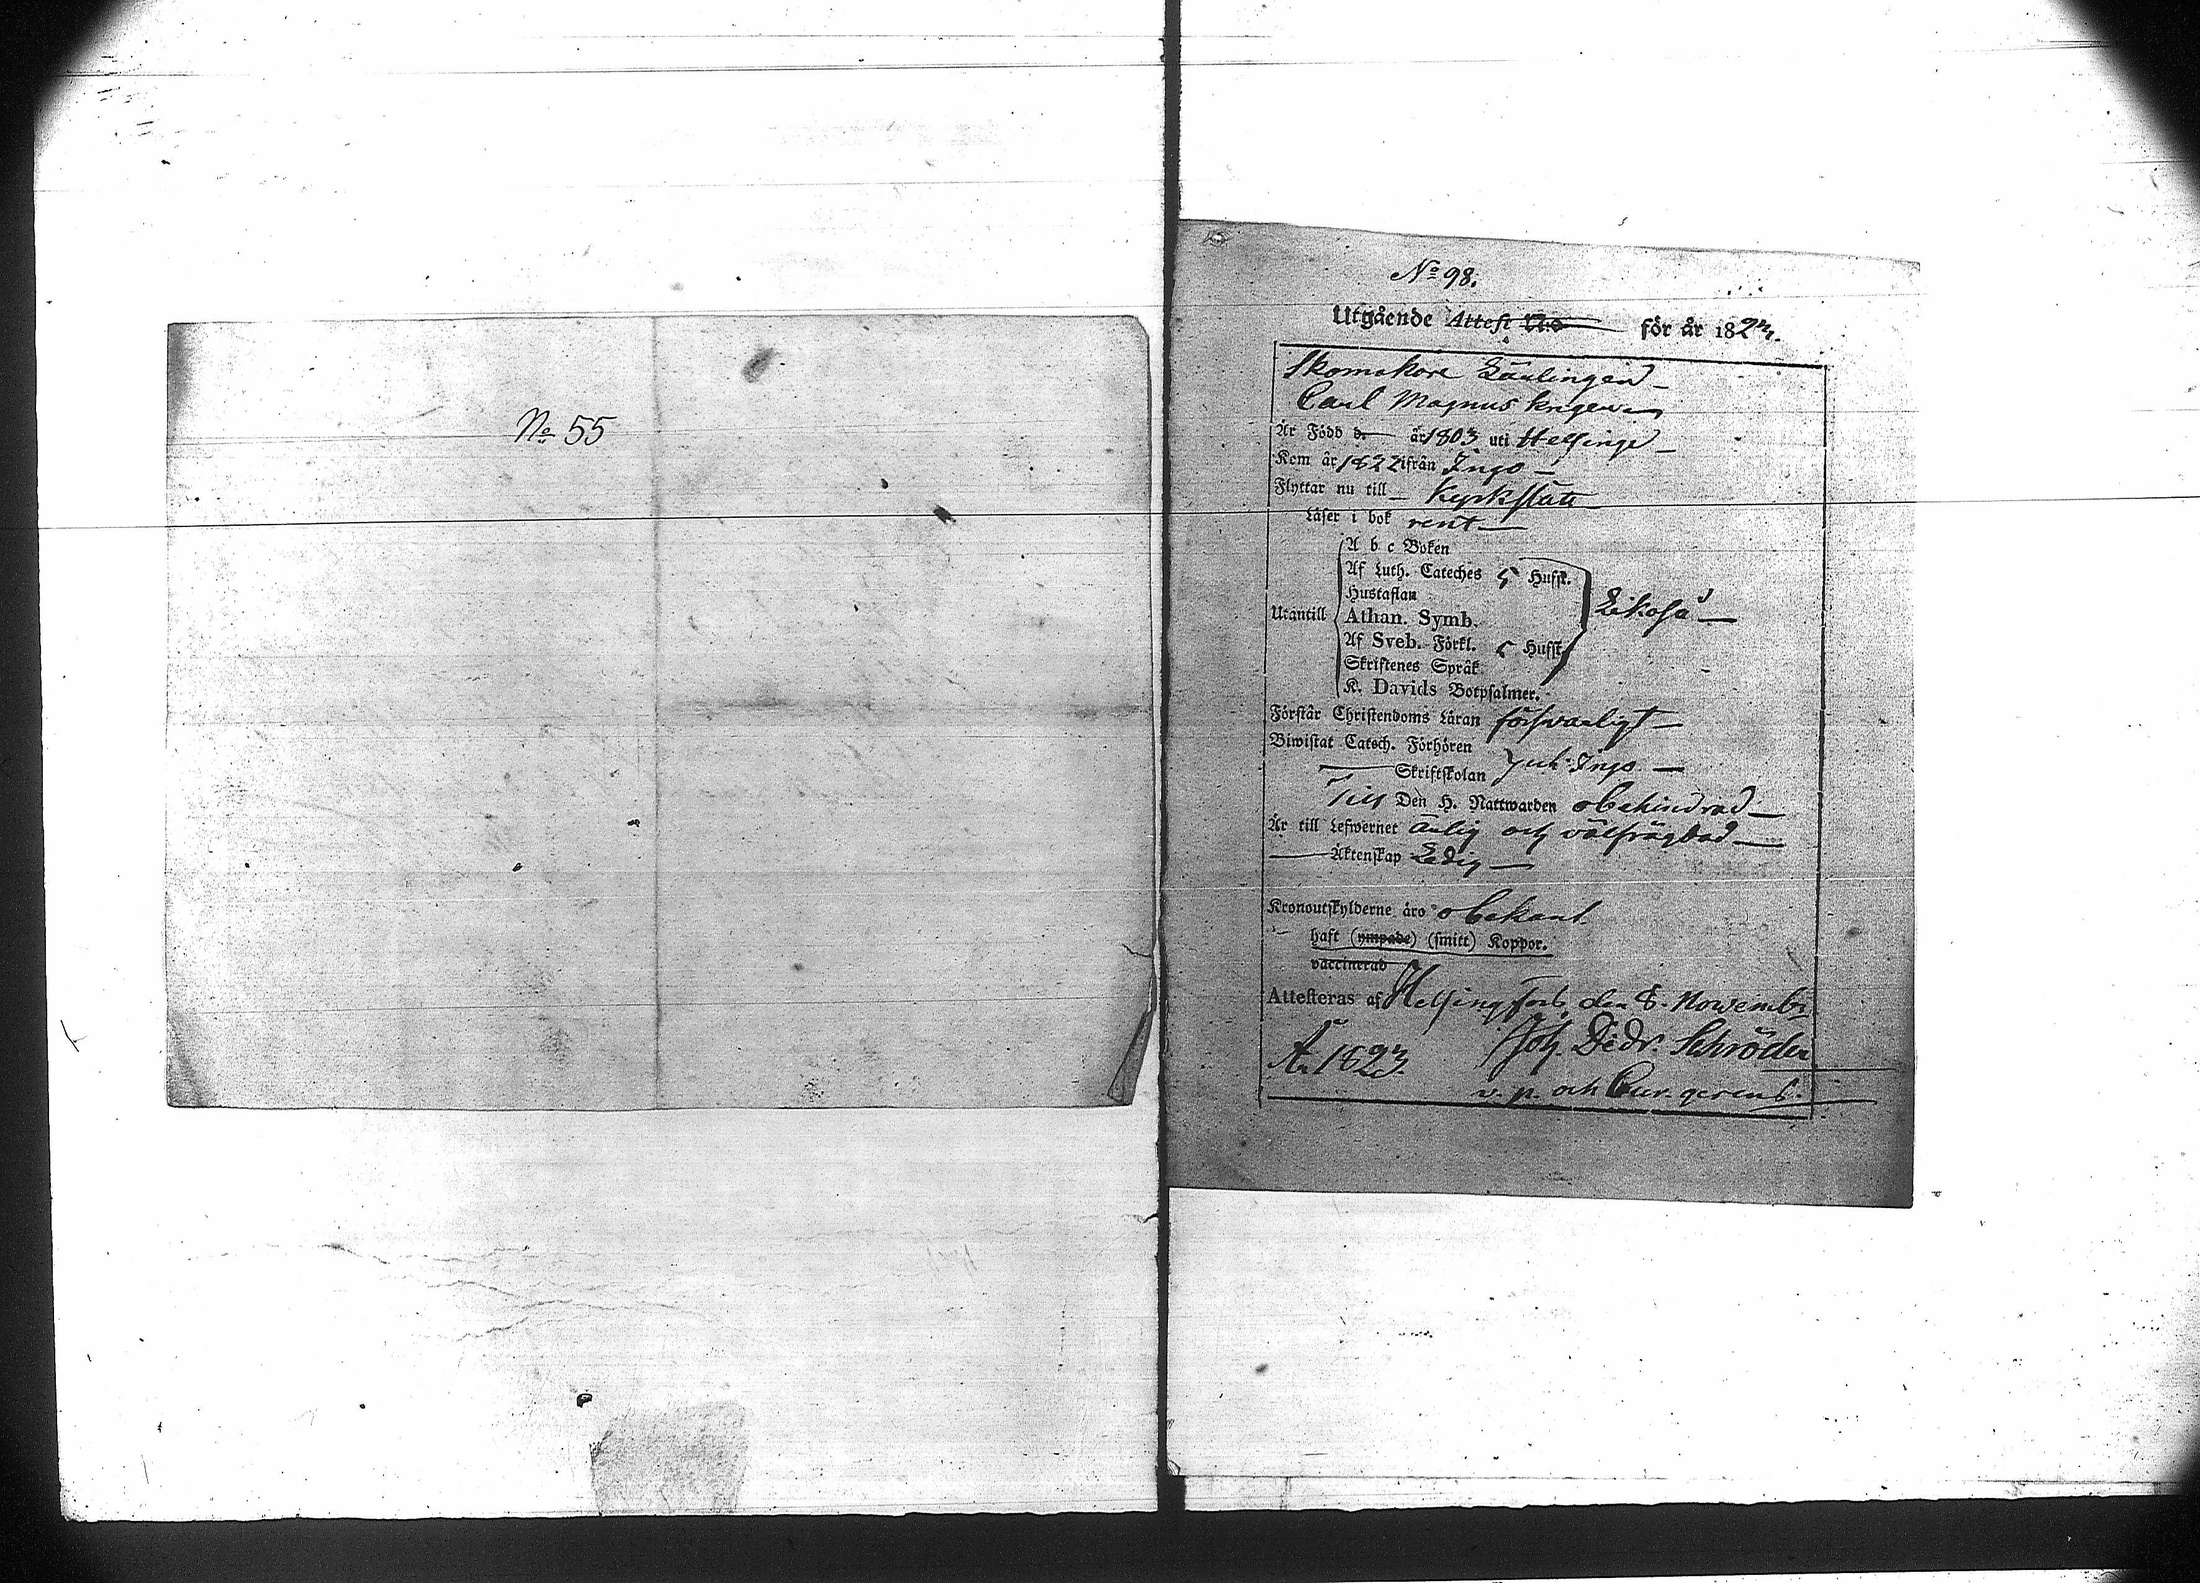 No 55
No 98.
Utgående Attest för år 1823.
Skomakare Lärlingen
Carl Magnus
Är Född d. år 1803 uti Helsinge
Kom år 1822 ifrån Ingo
Flyttar nu till Kyrkslätt
Läser i bok rent
A b c Boken
Af Luth. Cateches 5 Hufst.
Hustaflan
Utantill Athan. Symb. Likaså
Af Sveb. Förkl. 5 Hufst.
Skriftenes Språk
K. Davids Botpsalmer.
Förstår Christendoms Läran försvarligt
Biwistat Catech. Förhören
Skriftskolan uti Ingo
Till Den H. Nattwarden obehindrad
Är till Lefwernet ärlig och välfrägdad
Äktenskap Ledig
Kronoutskylderne äro obekant
haft (ympade) (smitt) Koppor.
vaccinerad
Attesteras af Helsingfors den 8. Novembr
År 1823. Joh. Dedr. Schröder
v. p. och Cur. gerens.